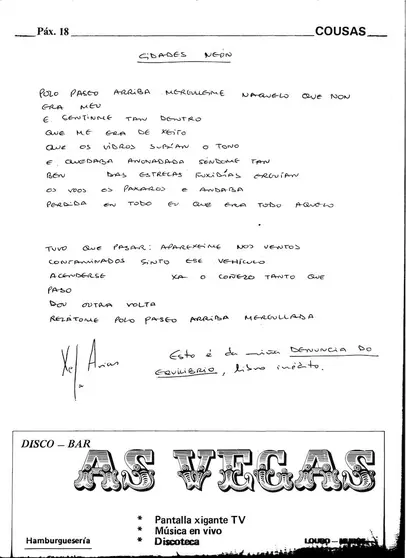 Páx. 18
COUSAS
CIDADES NEÓN
POLO PASEO ARRIBA MERGULLEIME NAQUELO QUE NON
ERA MEU
E SENTINME TAN DENTRO
QUE ME ERA DE XEITO
QUE OS VIDROS SUBÍAN O TONO
E QUEDABA ANONADADA SÉNDOME TAN
BEN DAS ESTRELAS FUXIDÍAS ERGUÍAN
OS VEOS OS PAXAROS E ANDABA
PERDIDA EN TODO EU QUE ERA TODO AQUELO
TUVO QUE PASAR: APAREXEIME NOS VENTOS
CONTAMINADOS SINTO ESE VEHÍCULO
ACENDERSE XA O COÑEZO TANTO QUE
PASO
DOU OUTRA VOLTA
RELÁTOME POLO PASEO ARRIBA MERGULLADA
Arias
Esto é da miña DENUNCIA DO
EQUILIBRIO, libro inédito.
DISCO – BAR
AS VEGAS
* Pantalla xigante TV
* Música en vivo
* Discoteca
Hamburguesería
LOURO –